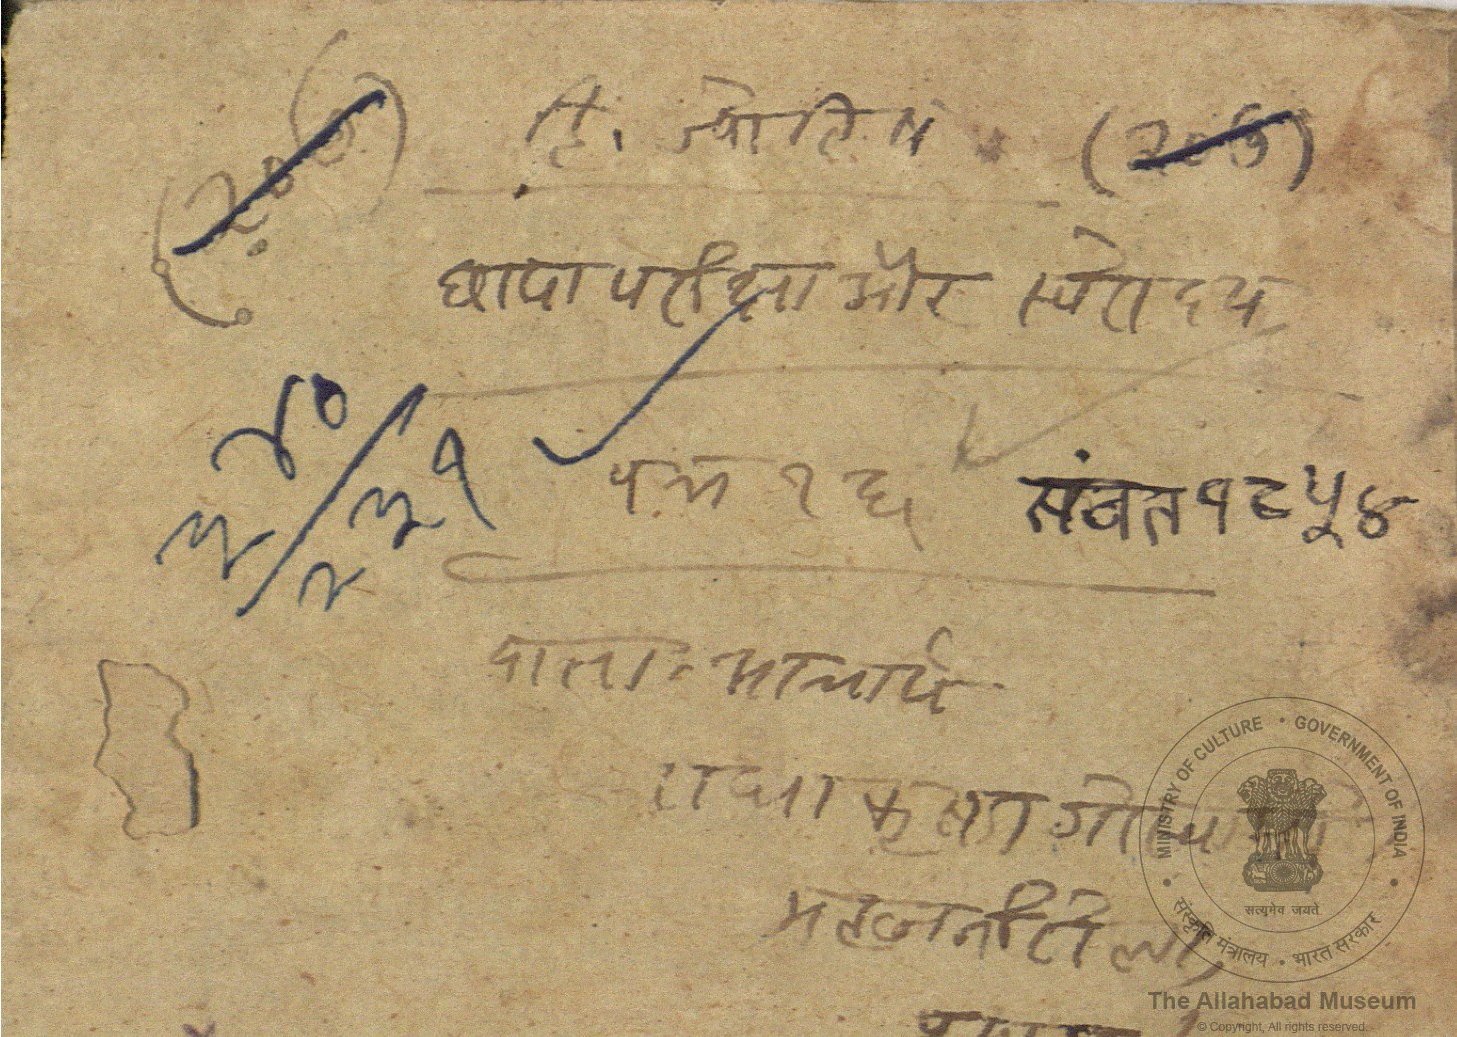 (२०७) हि. ज्योतिष (२०७)
छाया परीक्षा और स्वरोदय
४०/३३१
३/२
पत्र १६ संवत १८५४
दाता - आचार्य
राधा कृष्ण गोस्वामी
MINISTRY OF CULTURE • GOVERNMENT OF INDIA
सत्यमेव जयते
संस्कृति मंत्रालय • भारत सरकार
The Allahabad Museum
© Copyright, All rights reserved.